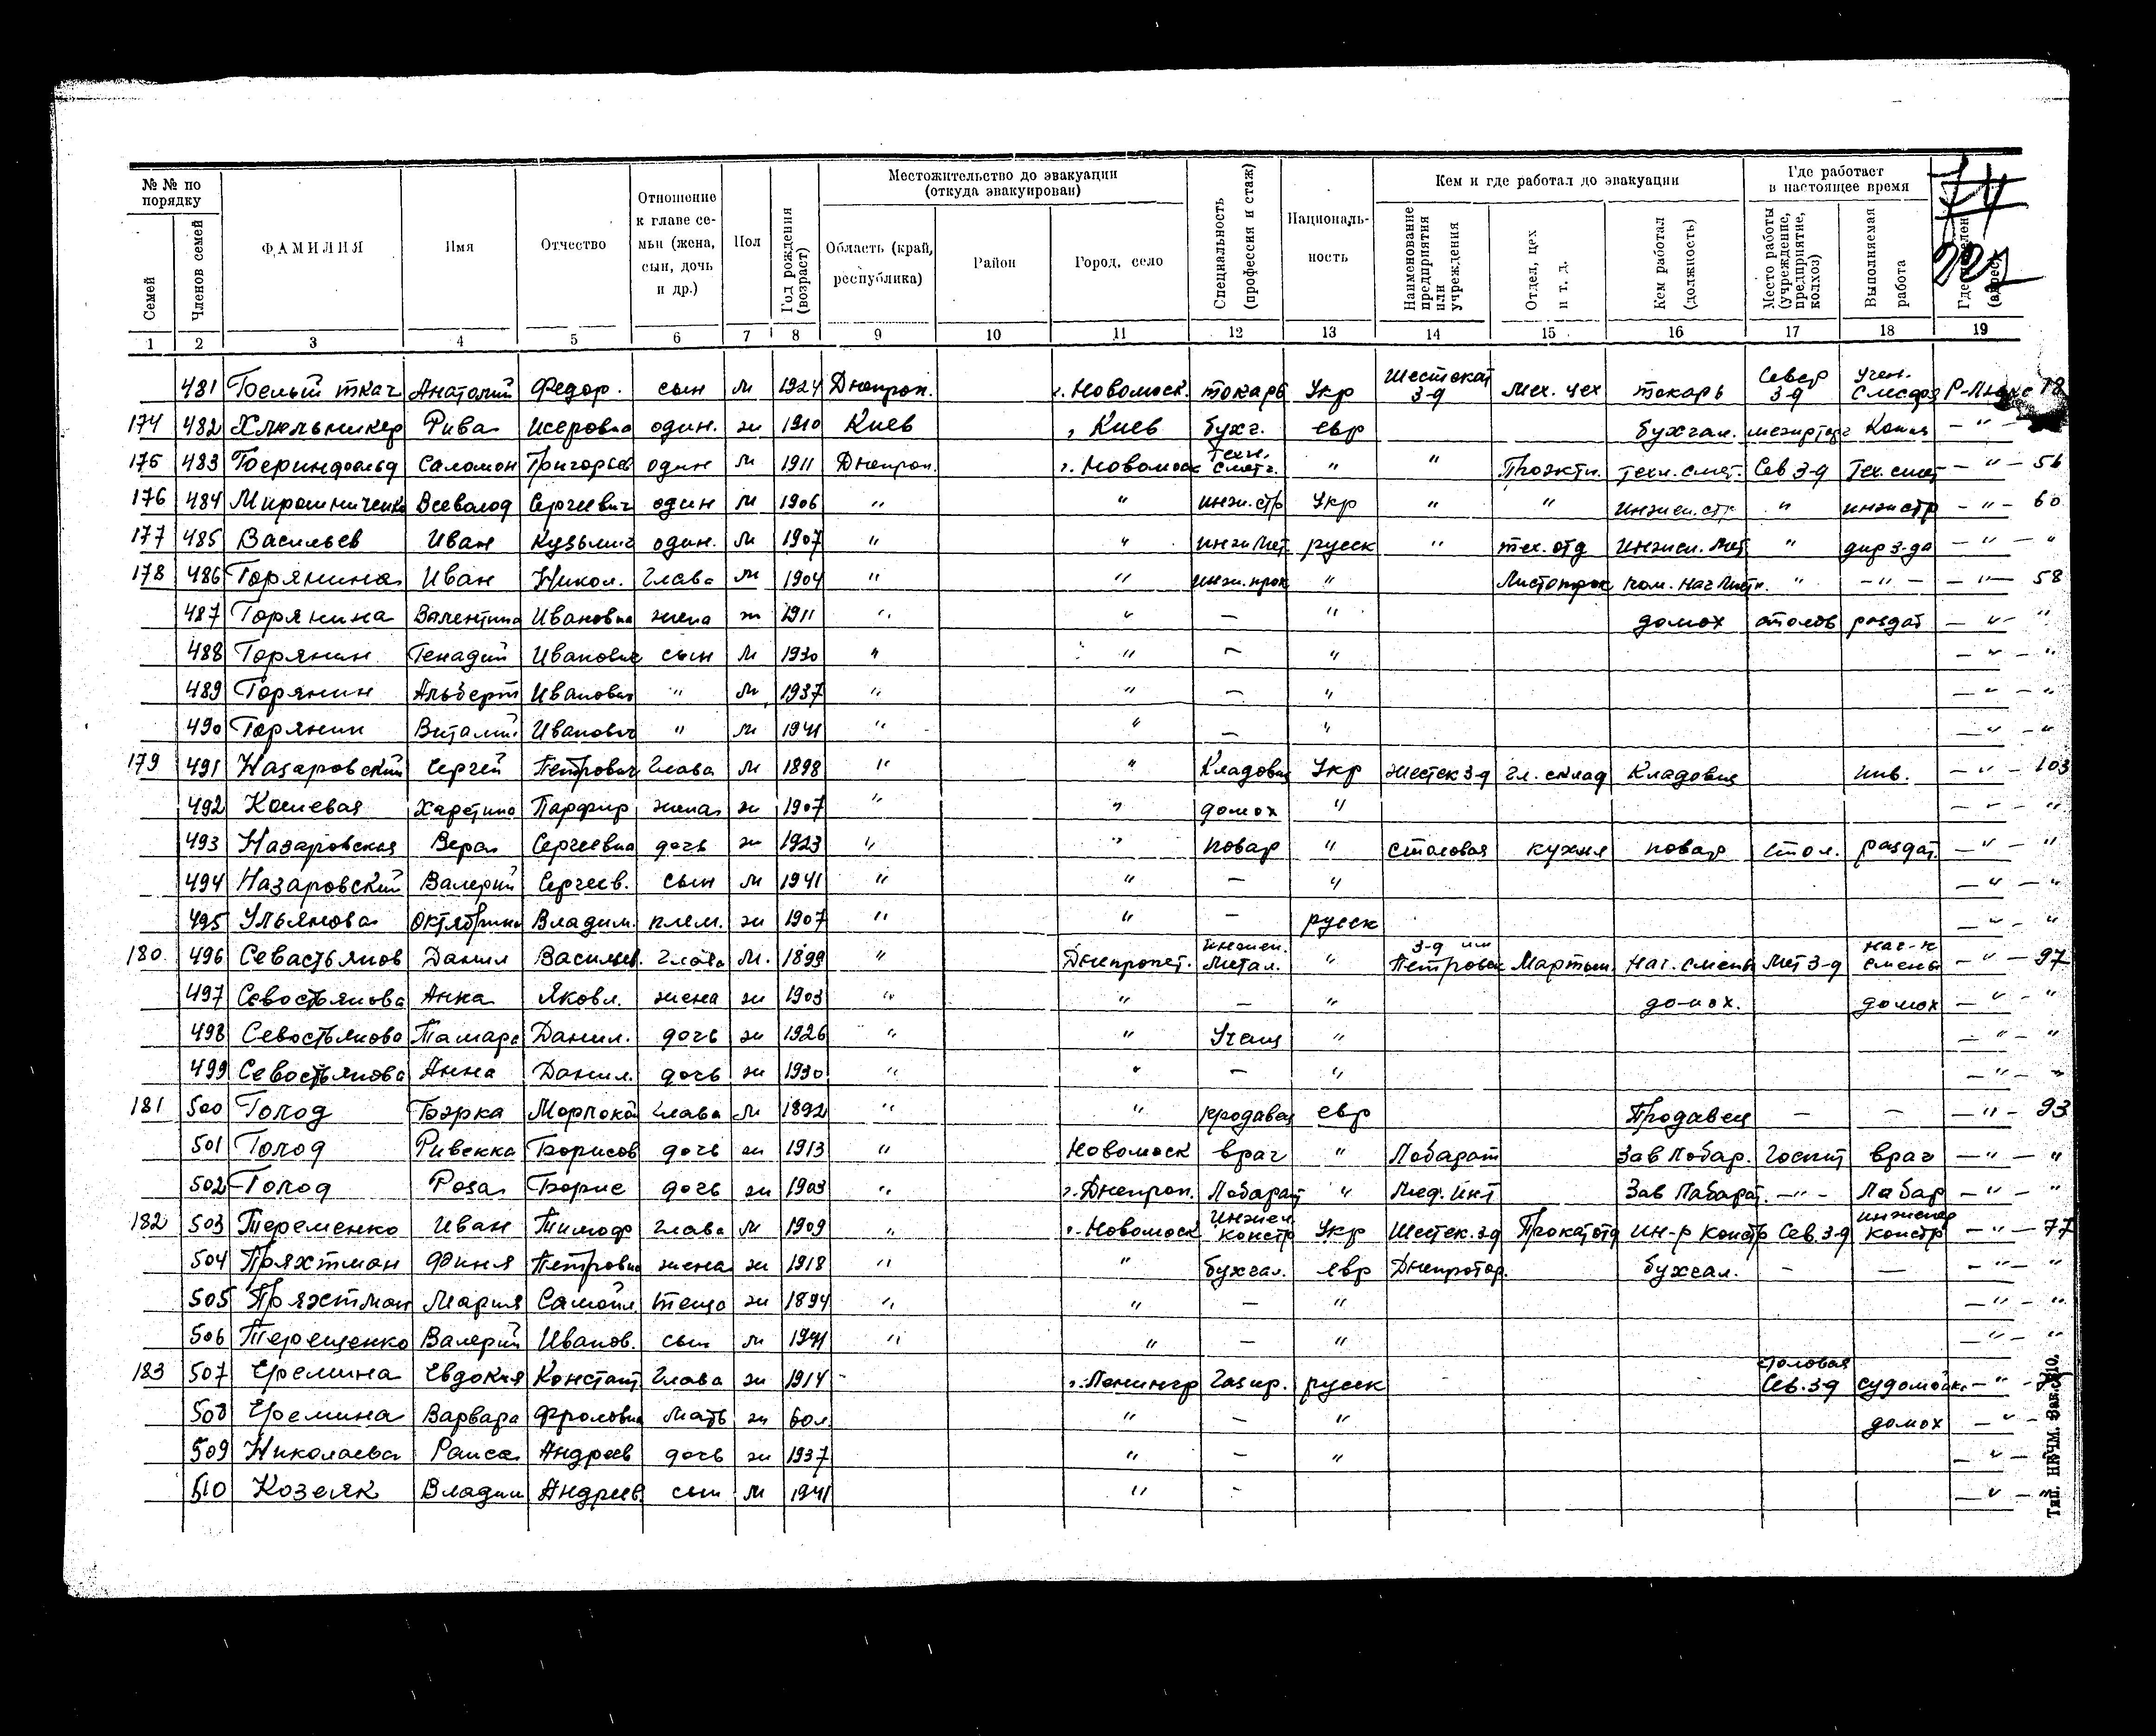 № № по порядку
Семей
Членов семей
ФАМИЛИЯ
Имя
Отчество
Отношение к главе семьи (жена, сын, дочь и др.)
Пол
Год рождения (возраст)
Местожительство до эвакуации (откуда эвакуирован)
Область (край, республика)
Район
Город, село
Специальность (профессия и стаж)
Национальность
Кем и где работал до эвакуации
Наименование предприятия или учреждения
Отдел, цех и т. д.
Кем работал (должность)
Где работает в настоящее время
Место работы (учреждение, предприятие, колхоз)
Выполняемая работа
(адрес)
74
1 2 3 4 5 6 7 8 9 10 11 12 13 14 15 16 17 18 19
481 Белый ткач Анатолий Федор. сын м 1924 Днепроп. г. Новомоск. токарь Укр 3-д Мех. цех токарь Север 3-д учен. 78
174 482 Рива Исеровна один. ж 1910 Киев г. Киев бухг. евр бухгал. — " —
175 483 Саломон Григорьев один м 1911 Днепроп. г. Новомоск Техн. смет. " " Проэктн. техн. смет. Сев 3-д Тех. смет — " — 56
176 484 Мирошниченко Всеволод Сергеевич один м 1906 " " инж. стр Укр " " инжен. стр " инж стр — " — 60
177 485 Васильев Иван Кузьмич один. м 1907 " " инж Мет русск " тех. отд Инжен. Мет " дир 3-да — " — "
178 486 Горянина Иван Никол. Глава м 1904 " " инж. прок " Листопрок пом. нач Лист. " — " — — " — 58
487 Горянина Валентина Ивановна жена ж 1911 " " — " домох столов раздат — " — "
488 Горянин Генадий Иванович сын м 1930 " " — " — " — "
489 Горянин Альберт Иванович " м 1937 " " — " — " — "
490 Горянин Виталий Иванович " м 1941 " " — " — " — "
179 491 Назаровский Сергей Петрович Глава м 1898 " " Кладовщ Укр жестек 3-д гл. склад Кладовщ инв. — " — 103
492 Кошевая Харетина Парфир жена ж 1907 " " домох " — " — "
493 Назаровская Вера Сергеевна дочь ж 1923 " " повар " столовая кухня повар стол. раздат. — " — "
494 Назаровский Валерий Сергеев. сын м 1941 " " — " — " — "
495 Ульянова Октябрина Владим. плем. ж 1907 " " — русск — " — "
180 496 Севастьянов Данил Васильев. Глава м. 1899 " Днепропет. инжен. Метал. " 3-д им Петровск Мартын. Нач. смены Мет 3-д нач-к смены — " — 97
497 Севостьянова Анна Яковл. жена ж 1903 " " — " домох. домох — " — "
498 Севостьянова Тамара Данил. дочь ж 1926 " " Учащ " — " — "
499 Севостьянова Анна Данил. дочь ж 1930 " " — " — " — "
181 500 Голод Бэрка Глава м 1892 " " продавец евр Продавец — — — " — 93
501 Голод Ривекка Борисов дочь ж 1913 " Новомоск врач " Лабарат Зав Лабар. Госпит врач — " — "
502 Голод Роза Борис дочь ж 1903 " г. Днепроп. Лабарат " Мед. Инт Зав Лабарат. — " — Лабар — " — "
182 503 Теременко Иван Тимоф Глава м 1909 " г. Новомоск Инжен. Констр Укр Шестек. 3-д Прокат отд ин-р Констр Сев. 3-д инженер констр — " — 77
504 Пряхтман Фаня Петровна жена ж 1918 " " бухгал. евр Днепротор. бухгал. — — — " — "
505 Пряхтман Мария Самойл теща ж 1894 " " — " — " — "
506 Терещенко Валерий Иванов. сын м 1941 " " — " — " — "
183 507 Еремина Евдокия Констант Глава ж 1914 - г. Ленингр русск столовая Сев. 3-д судомойк. — " —
508 Еремина Варвара Фроловна мать ж 60 л. " — " домох — " —
509 Николаева Раиса Андреев дочь ж 1937 " — " — " —
510 Козеяк Владим Андреев. сын м 1941 " - — " — "
Тип. НКЧМ. Зак. 810.